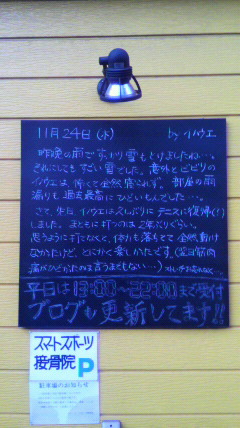 11月24日(水) by イノウエ
昨晩の雨ですっかり雪もとけましたね…。
それにしてもすごい雷でした。意外とビビりの
イノウエは、怖くて全然寝られず。部屋の雨
漏りも過去最高にひどいもんでした…。
さて、先日イノウエは久しぶりにテニスに復帰(!)
しました。まともに打つのは2年ぶりくらい。
思うように打てなくて、体力も落ちてて全然動け
なかったけど、とにかく楽しかったです。(翌日筋肉
痛がひどかったのは言うまでもない…)
平日は13:00〜22:00まで受付
ブログも更新してます!!
スマートスポーツ
接骨院 P
駐車場のお知らせ